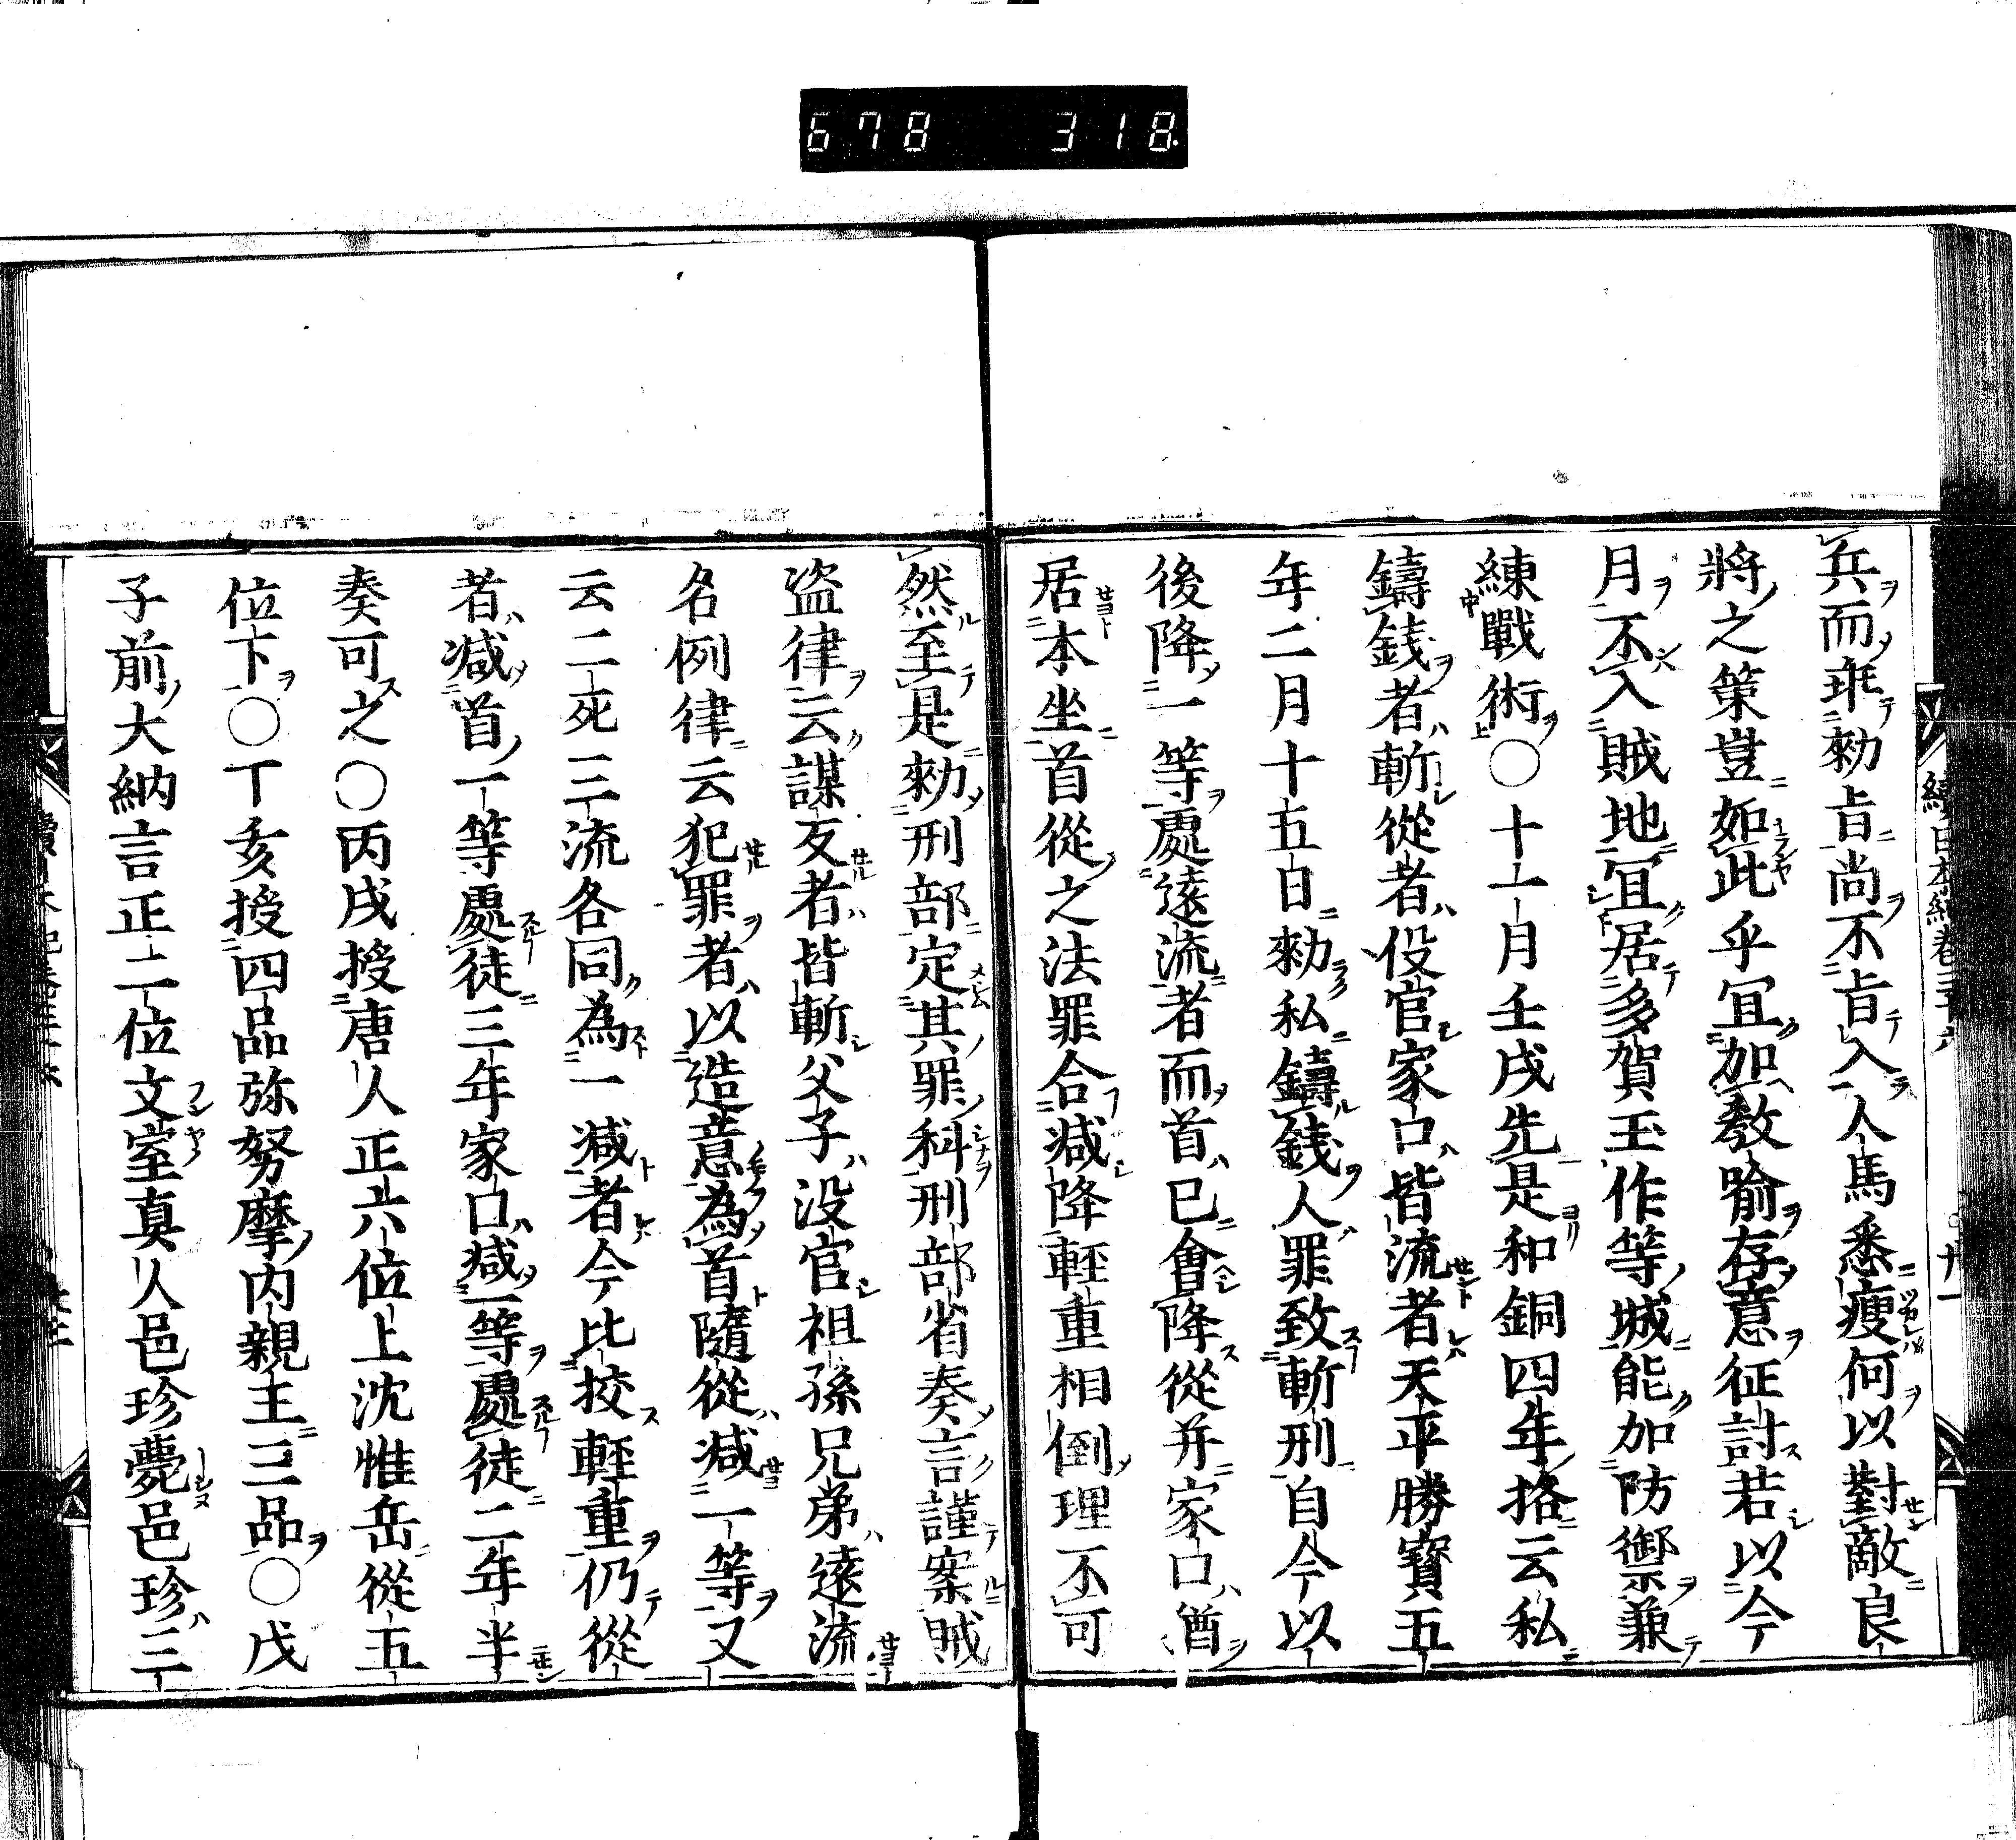 678 318
兵而乖勅旨尚不肯入人馬悉瘦何以對敵良
將之策豈如此乎宜加敎喻存意征討若以今
月不入賊地宜居多賀玉作等城能加防禦兼
練戰術○十一月壬戌先是和銅四年格云私
鑄錢者斬從者伇官家口皆流者天平勝寶五
年二月十五日勅私鑄錢人罪致斬刑自今以
後降一等處遠流者而首已會降從并家口猶
居本坐首從之法罪合减降輕重相倒理不可
然至是勅刑部定其罪科刑部省奏言謹案賊
盗律云謀反者皆斬父子没官祖孫兄弟遠流
名例律云犯罪者以造意為首隨從减一等又
云二死三流各同為一减者今比挍輕重仍從
者减首一等處徒三年家口减一等處徒二年半
奏可之○丙戌授唐人正六位上沈惟岳從五
位下○丁亥授四品弥努摩内親王三品○戊
子前大納言正二位文室真人邑珍薨邑珍三